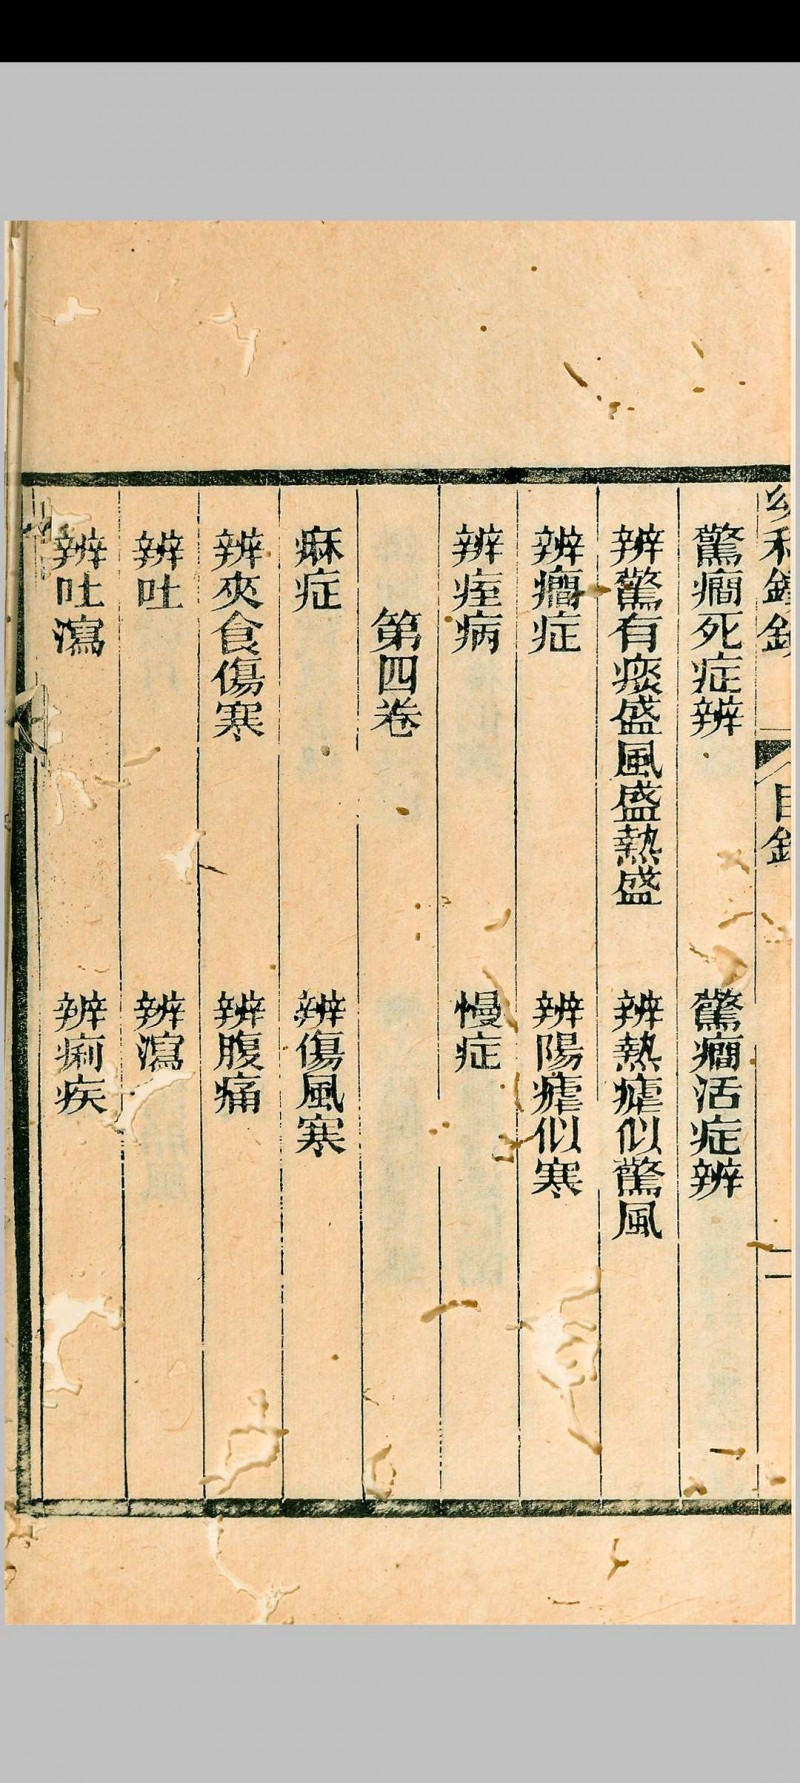 幼科鐵鏡 目錄 二
驚癎死症辨 驚癎活症辨
辨驚有痰盛風盛熱盛 辨熱瘧似驚風
辨癎症 辨陽瘧似寒
辨痓病 慢症
第四卷
麻症 辨傷風寒
辨夾食傷寒 辨腹痛
辨吐 辨瀉
辨吐瀉 辨痢疾